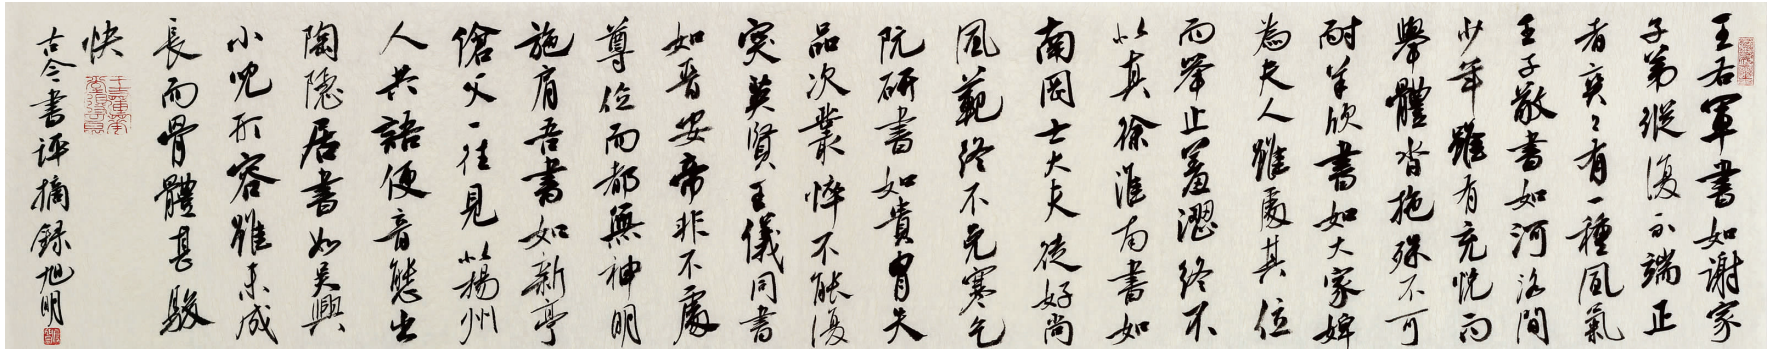 王右軍書如謝家
子弟縱復不端正
者奕々有一種風氣
王子敬書如河洛間
少年雖有充悅而
舉體沓拖殊不可
耐羊欣書如大家婢
為夫人雖處其位
而舉止羞澀終不
似真徐淮南書如
南岡士大夫徒好尚
風範終不免寒乞
阮研書如貴胄失
品次叢悴不能復
突英賢王儀同書
如晉安帝非不處
尊位而都無神明
施肩吾書如新亭
傖父一往見似揚州
人共語便音態出
陶隱居書如吳興
小兒形容雖未成
長而骨體甚駿
快
古今書評摘錄旭明